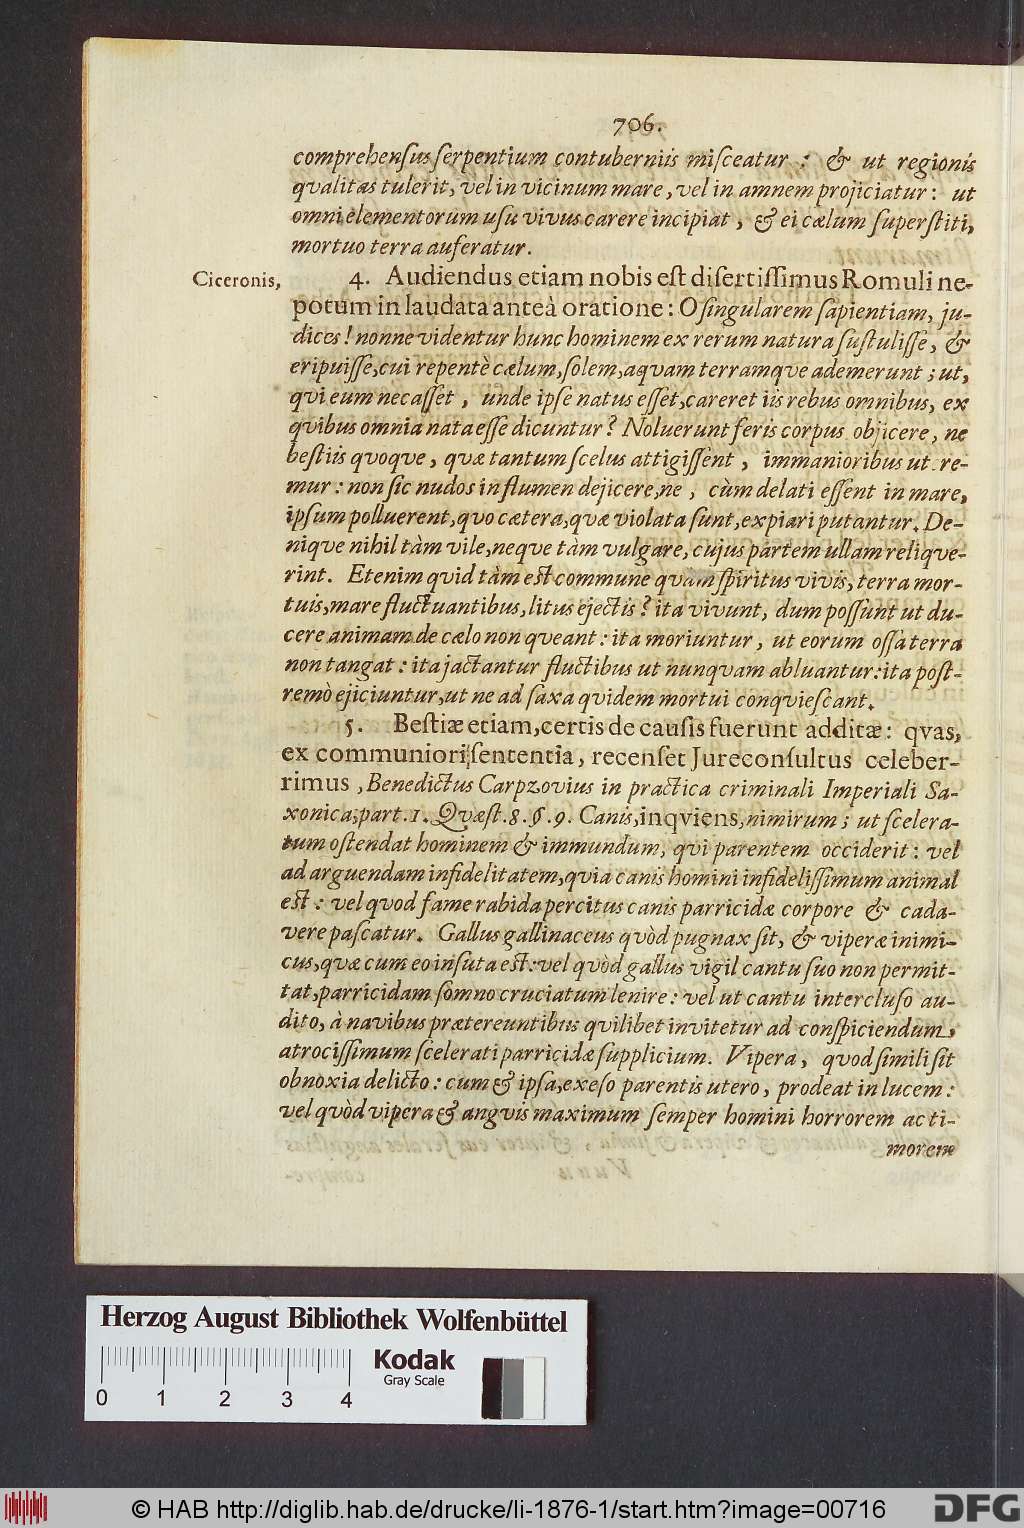 706.
comprehensus serpentium contuberniis misceatur : & ut regionis
qvalitas tulerit, vel in vicinum mare, vel in amnem projiciatur : ut
omni elementorum usu vivus carere incipiat, & ei cælum superstiti,
mortuo terra auferatur.
Ciceronis,
4. Audiendus etiam nobis est disertissimus Romuli ne-
potum in laudata anteà oratione : O singularem sapientiam, ju-
dices ! nonne videntur hunc hominem ex rerum natura sustulisse, &
eripuisse, cui repentè cælum, solem, aqvam terramqve ademerunt ; ut,
qvi eum necasset, unde ipse natus esset, careret iis rebus omnibus, ex
qvibus omnia nata esse dicuntur ? Noluerunt feris corpus objicere, ne
bestiis qvoqve, qvæ tantum scelus attigissent, immanioribus ute-
mur : non sic nudos in flumen dejicere, ne, cùm delati essent in mare,
ipsum polluerent, qvo cætera, qvæ violata sunt, expiari putantur. De-
niqve nihil tàm vile, neqve tàm vulgare, cujus partem ullam reliqve-
rint. Etenim qvid tàm est commune qvam spiritus vivis, terra mor-
tuis, mare fluctuantibus, litus ejectis ? ita vivunt, dum possunt ut du-
cere animam de cælo non qveant : ita moriuntur, ut eorum ossa terra
non tangat : ita jactantur fluctibus ut nunqvam abluantur : ita post-
remò ejiciuntur, ut ne ad saxa qvidem mortui conqviescant.
5. Bestiæ etiam, certis de causis fuerunt additæ : qvas,
ex communiori sententia, recenset Jureconsultus celeber-
rimus, Benedictus Carpzovius in practica criminali Imperiali Sa-
xonica, part. 1. Qvæst. 8. §. 9. Canis, inqviens, nimirum ; ut scelera-
tum ostendat hominem & immundum, qvi parentem occiderit : vel
ad arguendam infidelitatem, qvia canis homini infidelissimum animal
est : vel qvod fame rabida percitus canis parricidæ corpore & cada-
vere pascatur. Gallus gallinaceus qvòd pugnax sit, & viperæ inimi-
cus, qvæ cum eo insuta est : vel qvòd gallus vigil cantu suo non permit-
tat, parricidam somno cruciatum lenire : vel ut cantu intercluso au-
dito, à navibus prætereuntibus qvilibet invitetur ad conspiciendum,
atrocissimum scelerati parricidæ supplicium. Vipera, qvod simili sit
obnoxia delicto : cum & ipsa, exeso parentis utero, prodeat in lucem :
vel qvòd vipera & angvis maximum semper homini horrorem ac ti-
morem
Herzog August Bibliothek Wolfenbüttel
0 1 2 3 4
Kodak
Gray Scale
© HAB http://diglib.hab.de/drucke/li-1876-1/start.htm?image=00716
DFG